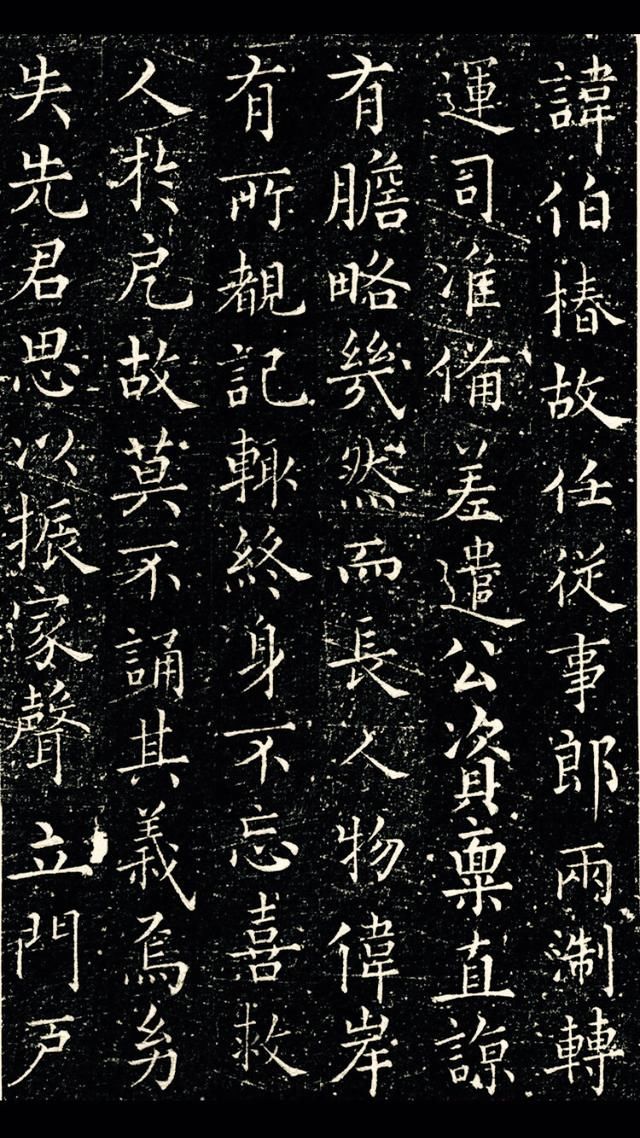 諱伯椿故任從事郎兩淛轉
運司准備差遣公資稟直諒
有膽略㡬然而長人物偉岸
有所覩記輙終身不忘喜救
人於戹故莫不誦其義焉㓜
失先君思以振家聲立門戶